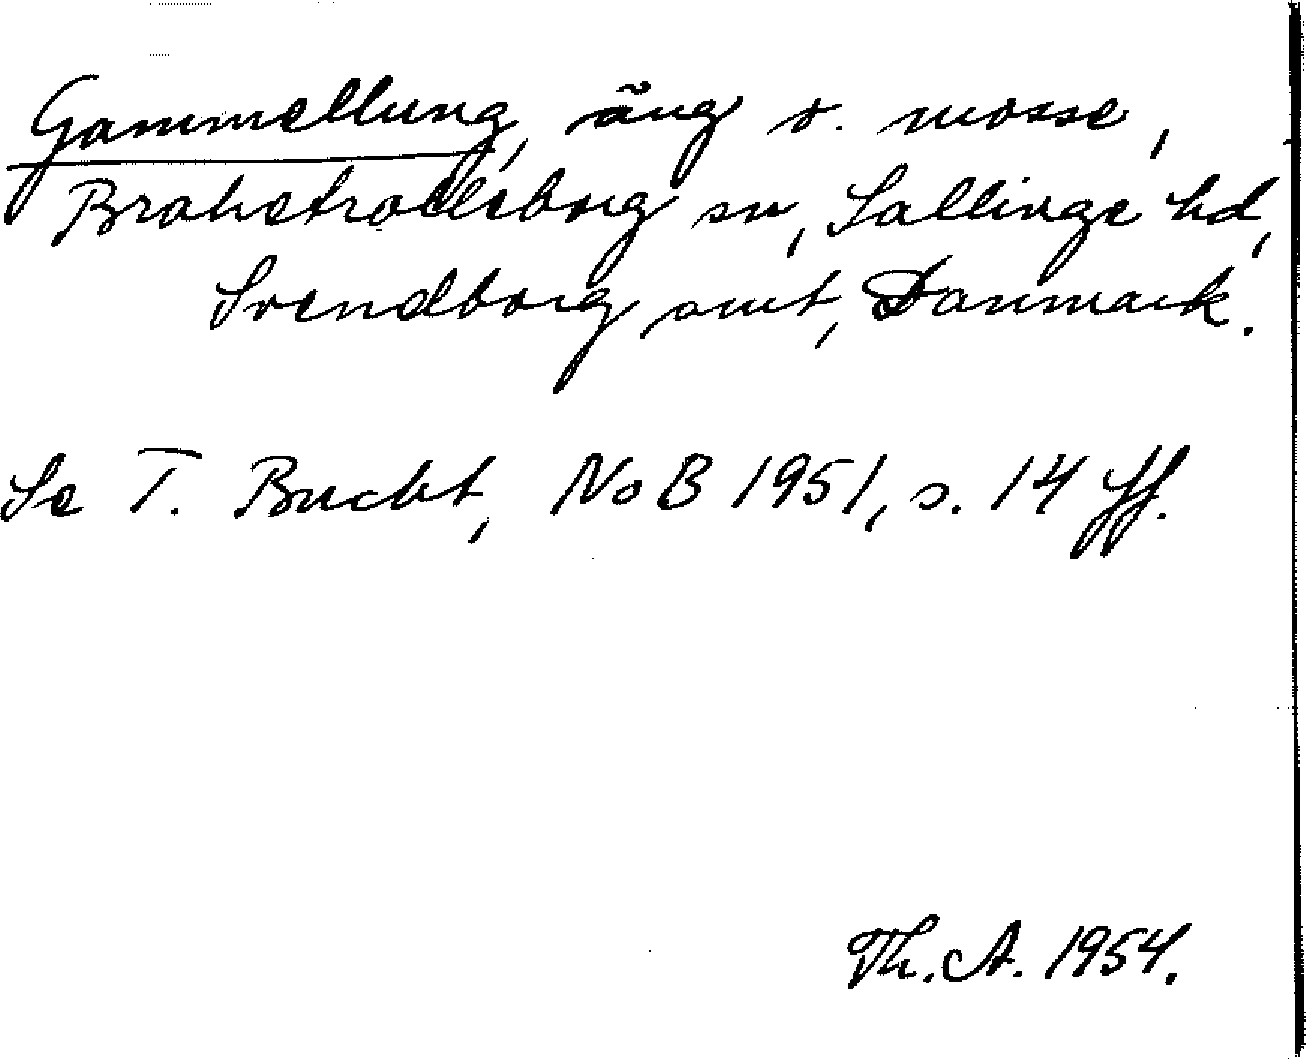 Gammellung, äng o. mosse,
Brahetrolleborg sn, Sallinge hd,
Svendborg amt, Danmark.
Se T. Bucht, NoB 1951, s. 14 ff.
Th. A. 1954.